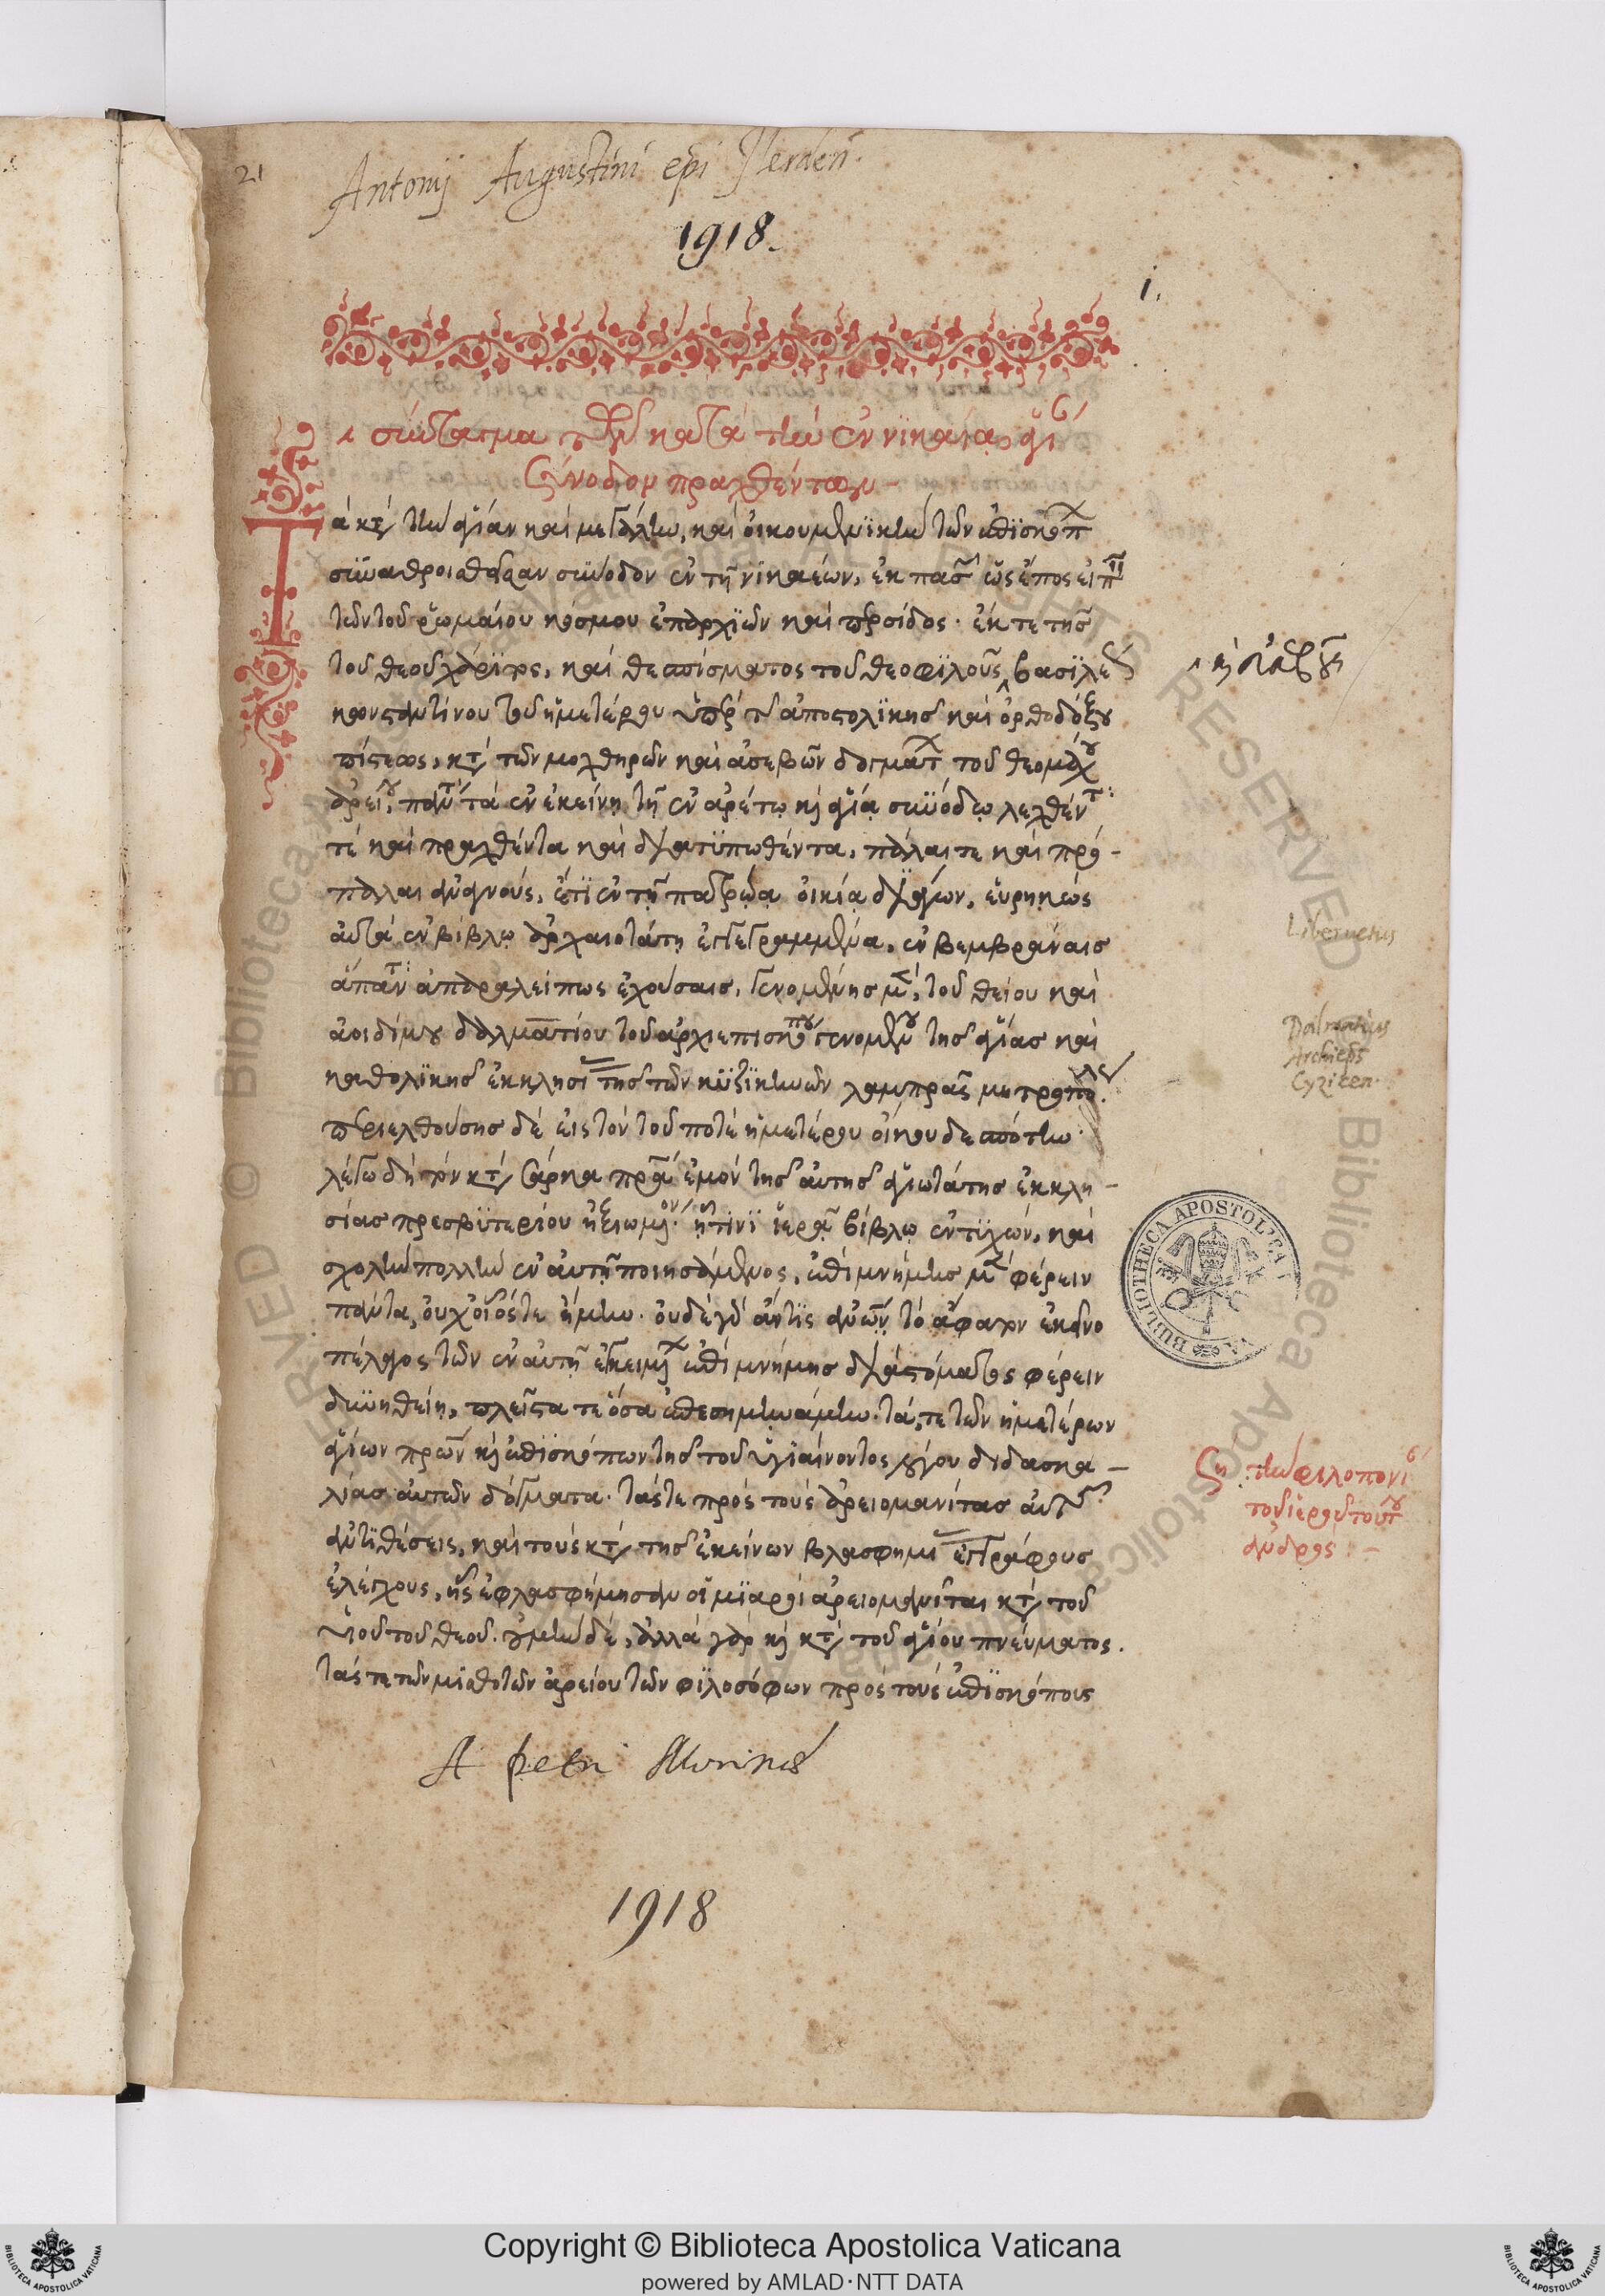 21
Antonij Augustini epi Ilerdeñ.
1918.
1.
σύνταγμα τῶν κατὰ τὴν ἐν νικαίᾳ ἁγί
σύνοδον πραχθέντων
Τὰ κτ τὴν ἁγίαν καὶ μεγάλην, καὶ οἰκουμενϊκὴν τῶν ἐπϊσκόπ
συναθροισθεῖσαν σύνοδον ἐν τῇ νϊκαέων, ἐκ πασ ὡς ἔπος εἰπ
τῶν τοῦ ῥωμαίου κόσμου ἐπαρχϊῶν καὶ περσίδος. ἔκ τε τῆς
τοῦ θεοῦ χάρϊτος, καὶ θεσπίσματος τοῦ θεοφϊλοῦς βασϊλε
κωνσταντίνου τοῦ ἡμετέρου ὑπὲρ τ ἀποστολϊκῆς καὶ ὀρθοδόξου
πίστεως, κτ τῶν μοχθηρῶν καὶ ἀσεβῶν δογματ τοῦ θεομάχου
ἀρείου, πάντα τὰ ἐν ἐκείνῃ τῇ ἐν ἀρέτῳ κ ἁγίᾳ συνόδῳ λεχθέντ
τὲ καὶ πραχθέντα καὶ διατϋπωθέντα, πάλαι τε καὶ πρό-
παλαι ἀνέγνους, ἔτϊ ἐν τῇ πατρῴᾳ οἰκίᾳ διάγων, εὑρηκὼς
αὐτὰ ἐν βίβλῳ ἀρχαιοτάτῃ ἐγγεγραμμένα, ἐν βεμβράναις
ἅπαντ ἀπαραλείπως ἐχούσαις, γενομένης μ, τοῦ θείου καὶ
ἀοιδίμου δαλματίου τοῦ ἀρχιεπισκόπου γενομένου τῆς ἁγίας καὶ
καθολϊκῆς ἐκκλησι τῆς τῶν κϋζϊκηνῶν λαμπρᾶς μητροπόλε
περιελθούσης δὲ εἰς τὸν τοῦ ποτὲ ἡμετέρου οἴκου δεσπότην.
λέγω δὴ τὸν κτ σάρκα πρα ἐμὸν τῆς αὐτῆς ἁγιωτάτης ἐκκλη-
σίας πρεσβϋτερίου ἠξιωμ. ᾗ τινϊ ἱερᾷ βίβλῳ ἐντϋχὼν, καὶ
σχολὴν πολλὴν ἐν αὐτῇ ποιησάμενος, ἐπὶ μνήμης μ φέρειν
πάντα, οὐχ οἷός τε ἤμην. οὐδὲ γὰ ἄντϊς ἀν ὢν τὸ ἄφατον ἐκεῖνο
πέλαγος τῶν ἐν αὐτῇ ἐγκειμ ἐπὶ μνήμης διὰ στόματος φέρειν
δυνηθείη, πλεῖστα τε ὅσα ἐπεσημηνάμην. τά, τε τῶν ἡμετέρων
ἁγίων πρων κ ἐπϊσκόπων τῆς τοῦ ὑγϊαίνοντος λόγου διδασκα-
λίας αὐτῶν δόγματα. τάς τε πρὸς τοὺς ἀρειομανίτας αὐτ
ἀντϊθέσεις, καὶ τοὺς κτ τῆς ἐκείνων βλασφημι ἐγγράφους
ἐλέγχους, ἧς ἐφλασφήμησαν οἱ μϊαροὶ ἀρειομανῖται κτ τοῦ
υἱοῦ τοῦ θεοῦ. οὐ μὴν δὲ, ἀλλὰ γὰρ κ κτ τοῦ ἁγίου πνεύματος.
τάς τε τῶν μισθωτῶν ἀρείου τῶν φϊλοσόφων πρὸς τοὺς ἐπϊσκόπους
Dalmatius
Archieps
Cyzicen.
ση. τὴν φιλοπονί
τοῦ ἱεροῦ τούτου
ἀνδρός :-
BIBLIOTHECA APOSTOLICA VA
A petri
1918
Copyright © Biblioteca Apostolica Vaticana
powered by AMLAD·NTT DATA